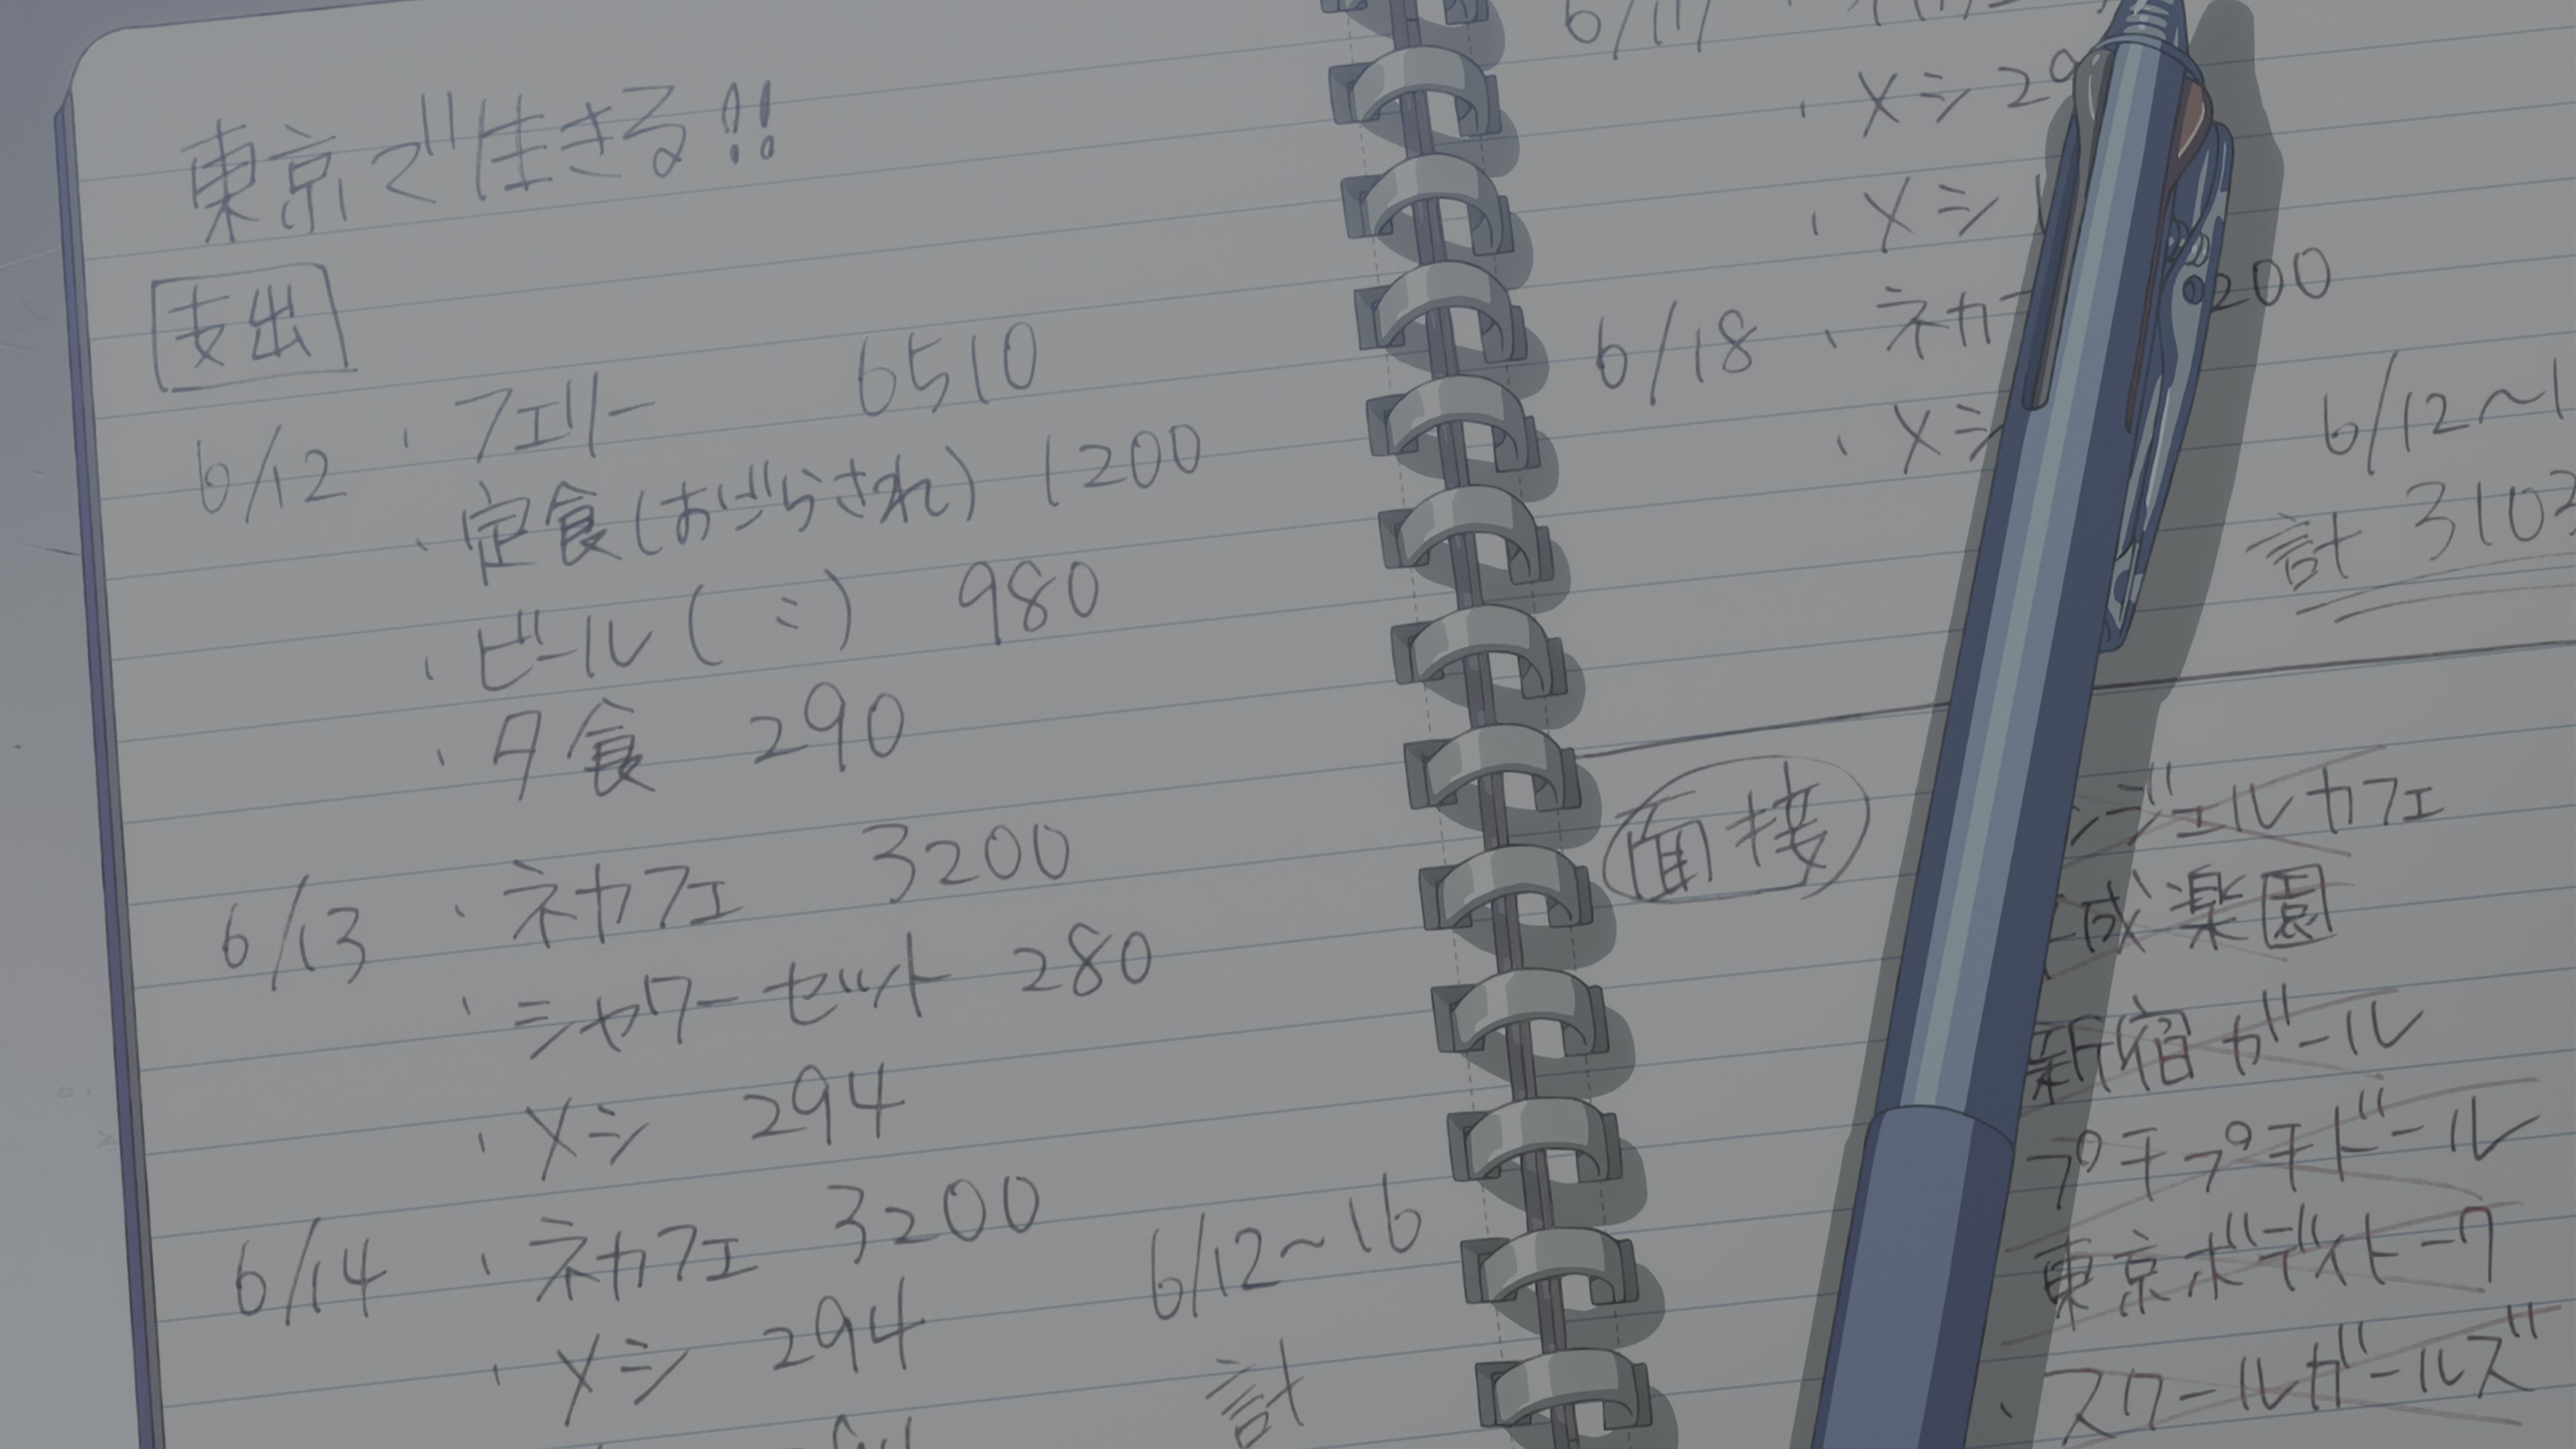 東京で生きる!!
支出
6/12 ・フェリー 6510
・定食(おごらされ) 1200
・ビール(〃) 980
・夕食 290
6/13 ・ネカフェ 3200
・シャワーセット 280
・メシ 294
6/14 ・ネカフェ 3200
・メシ 294
6/12~16
計
6/17
・メシ
・メシ
6/18 ・ネカ 200
・メシ
6/12~1
計 3103
面接
ジェルカフェ
成楽園
新宿ガール
プチプチドール
東京ボディトーク
・スクールガールズ